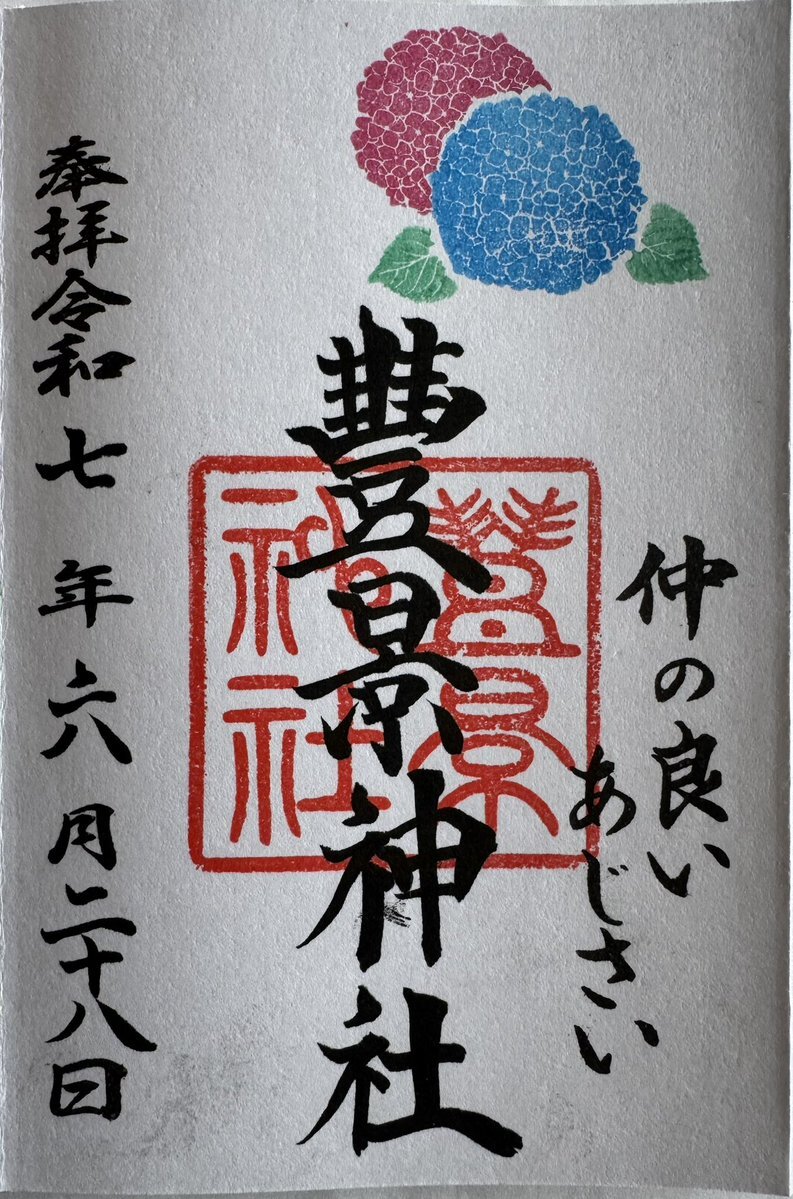 仲の良い
あじさい
豐景神社
豊景
神社
奉拝令和七年六月二十八日